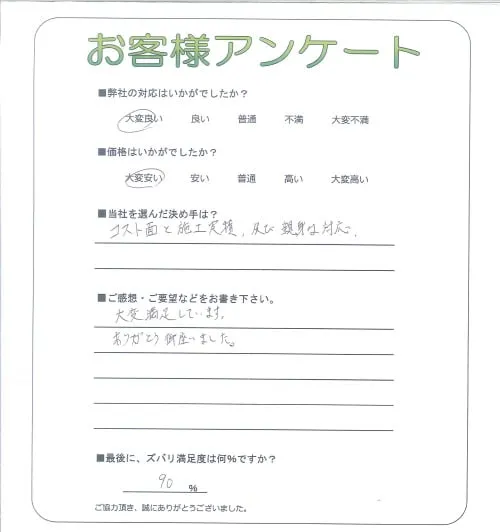 お客様アンケート
■弊社の対応はいかがでしたか？
大変良い 良い 普通 不満 大変不満
■価格はいかがでしたか？
大変安い 安い 普通 高い 大変高い
■当社を選んだ決め手は？
コスト面と施工実績、及び親身な対応。
■ご感想・ご要望などをお書き下さい。
大変満足しています。
ありがとう御座いました。
■最後に、ズバリ満足度は何%ですか？
90 %
ご協力頂き、誠にありがとうございました。